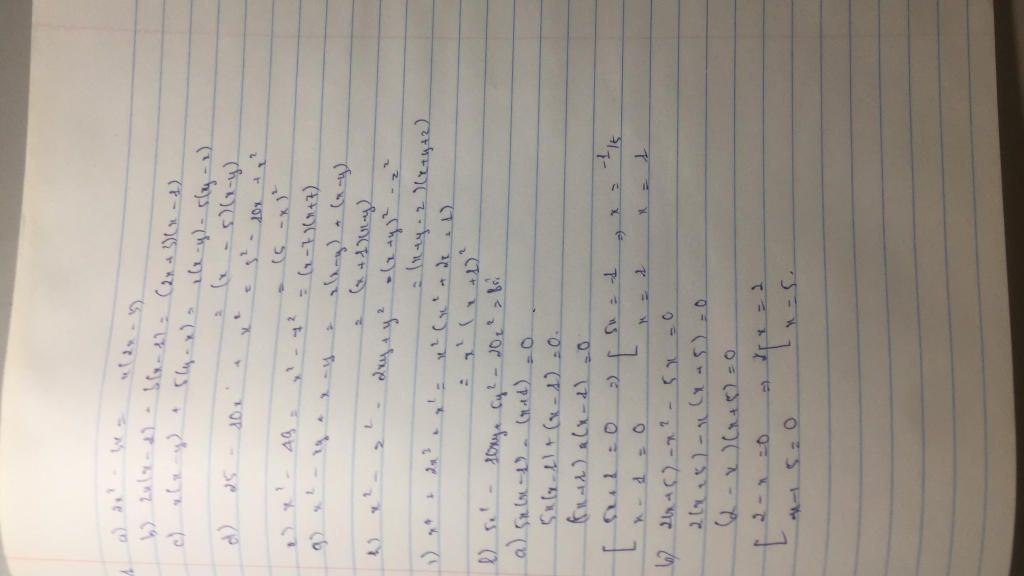 1
a) 2x² - 3x = x(2x - 3)
b) 2x(x-1) + 3(x-1) = (2x+3)(x-1)
c) x(x-y) + 5(y-x) = x(x-y) - 5(x-y)
= (x - 5)(x-y)
d) 25 - 10x + x² = 5² - 10x + x²
= (5 - x)²
e) x² - 49 = x² - 7² = (x-7)(x+7)
g) x² - xy + x - y = x(x-y) + (x-y)
= (x+1)(x-y)
h) x² - z² - 2xy + y² = (x+y)² - z²
= (x+y-z)(x+y+z)
i) x⁴ + 2x³ + x² = x²(x² + 2x + 1)
= x²(x+1)²
k) 5x² - 10xy + 5y² - 20z²
a) 5x(x-1) - (x+1) = 0
5x(x-1) + (x-1) = 0
(5x+1)(x-1) = 0
5x+1 = 0 => 5x = 1 => x = -1/5
x - 1 = 0 x = 1 x = 1
b) 2(x+5) - x² - 5x = 0
2(x+5) - x(x+5) = 0
(2-x)(x+5) = 0
2 - x = 0 => x = 2
5 = 0 x = 5.